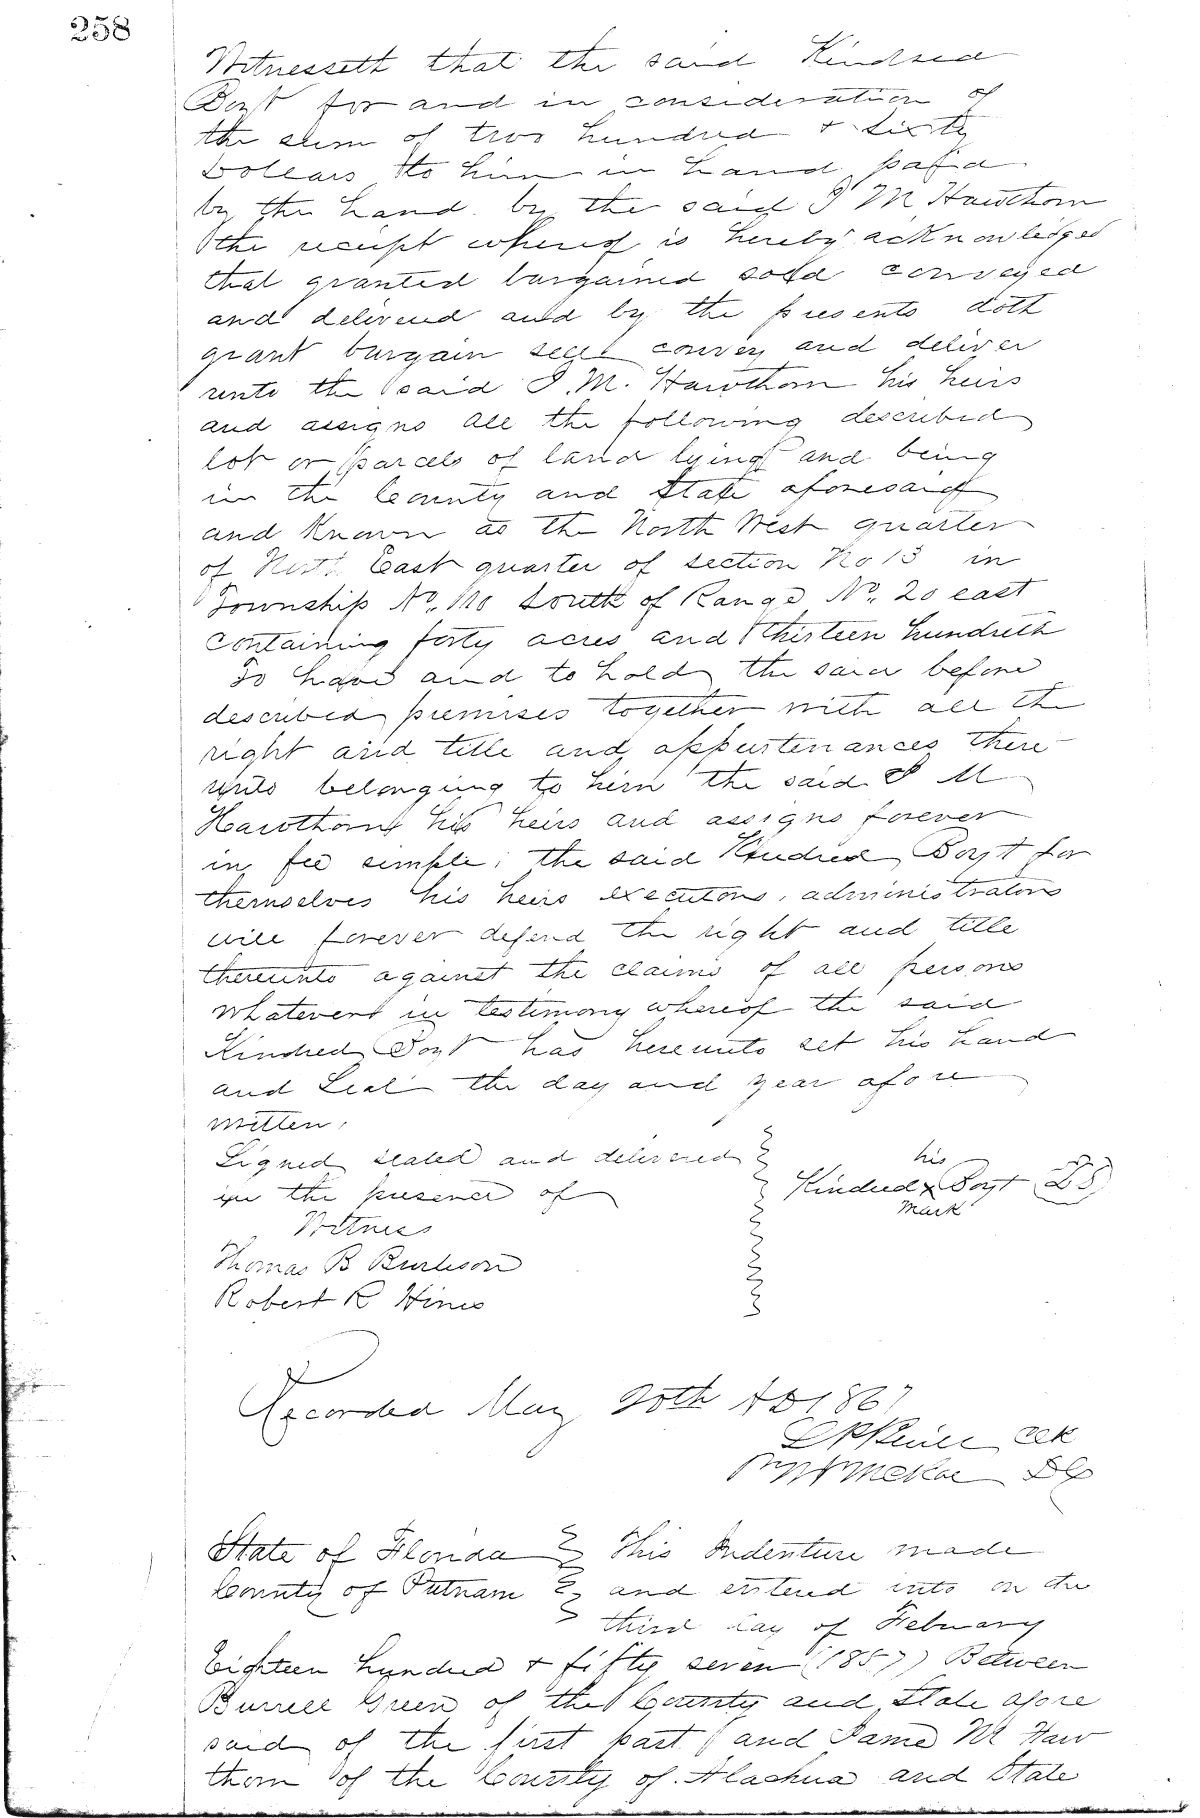 258
Witnesseth that the said Kindred
Boyt for and in consideration of
the sum of two hundred & sixty
Dollars to him in hand paid
by the hand by the said J M Hawthorn
the receipt whereof is hereby acknowledged
that granted bargained sold conveyed
and delivered and by the presents doth
grant bargain sell convey and deliver
unto the said J. M. Hawthorn his heirs
and assigns all the following described
lot or parcels of land lying and being
in the County and State aforesaid
and known as the North West quarter
of North East quarter of section No 13 in
Township No. 10 South of Range No. 20 east
containing forty acres and thirteen hundreth
To have and to hold the said before
described premises together with all the
right and title and appurtenances there
unto belonging to him the said J M
Hawthorn his heirs and assigns forever
in fee simple; the said Kindred Boyt for
themselves his heirs executors, administrators
will forever defend the right and title
thereunto against the claims of all persons
whatever in testimony whereof the said
Kindred Boyt has hereunto set his hand
and Seal the day and year afore
written.
Signed sealed and delivered
in the presence of
his
Kindred x Boyt LS
mark
Witness
Thomas B Burleson
Robert R Hines
Recorded May 20th AD 1867
Clk
McRae DC
State of Florida This Indenture made
County of Putnam and entered into on the
third day of Febuary
Eighteen hundred & fifty seven (1857) Between
Burrell Green of the County and State afore
said of the first part and James M Haw
thorn of the County of Alachua and State